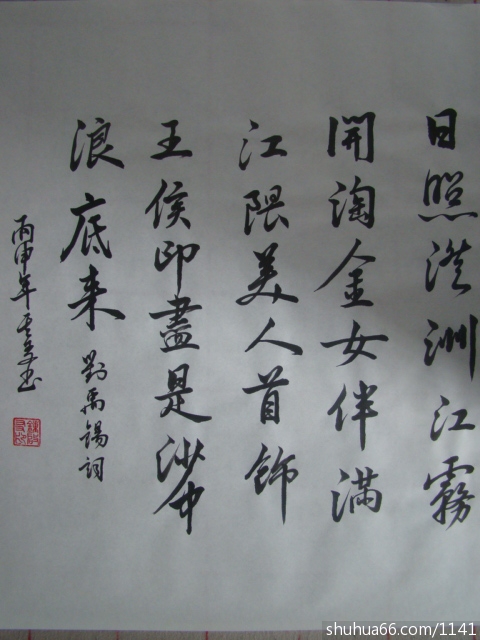 日照澄洲江霧
開淘金女伴滿
江隈美人首飾
王侯印盡是沙中
浪底来 劉禹錫詞
丙申年
shuhua66.com/1141